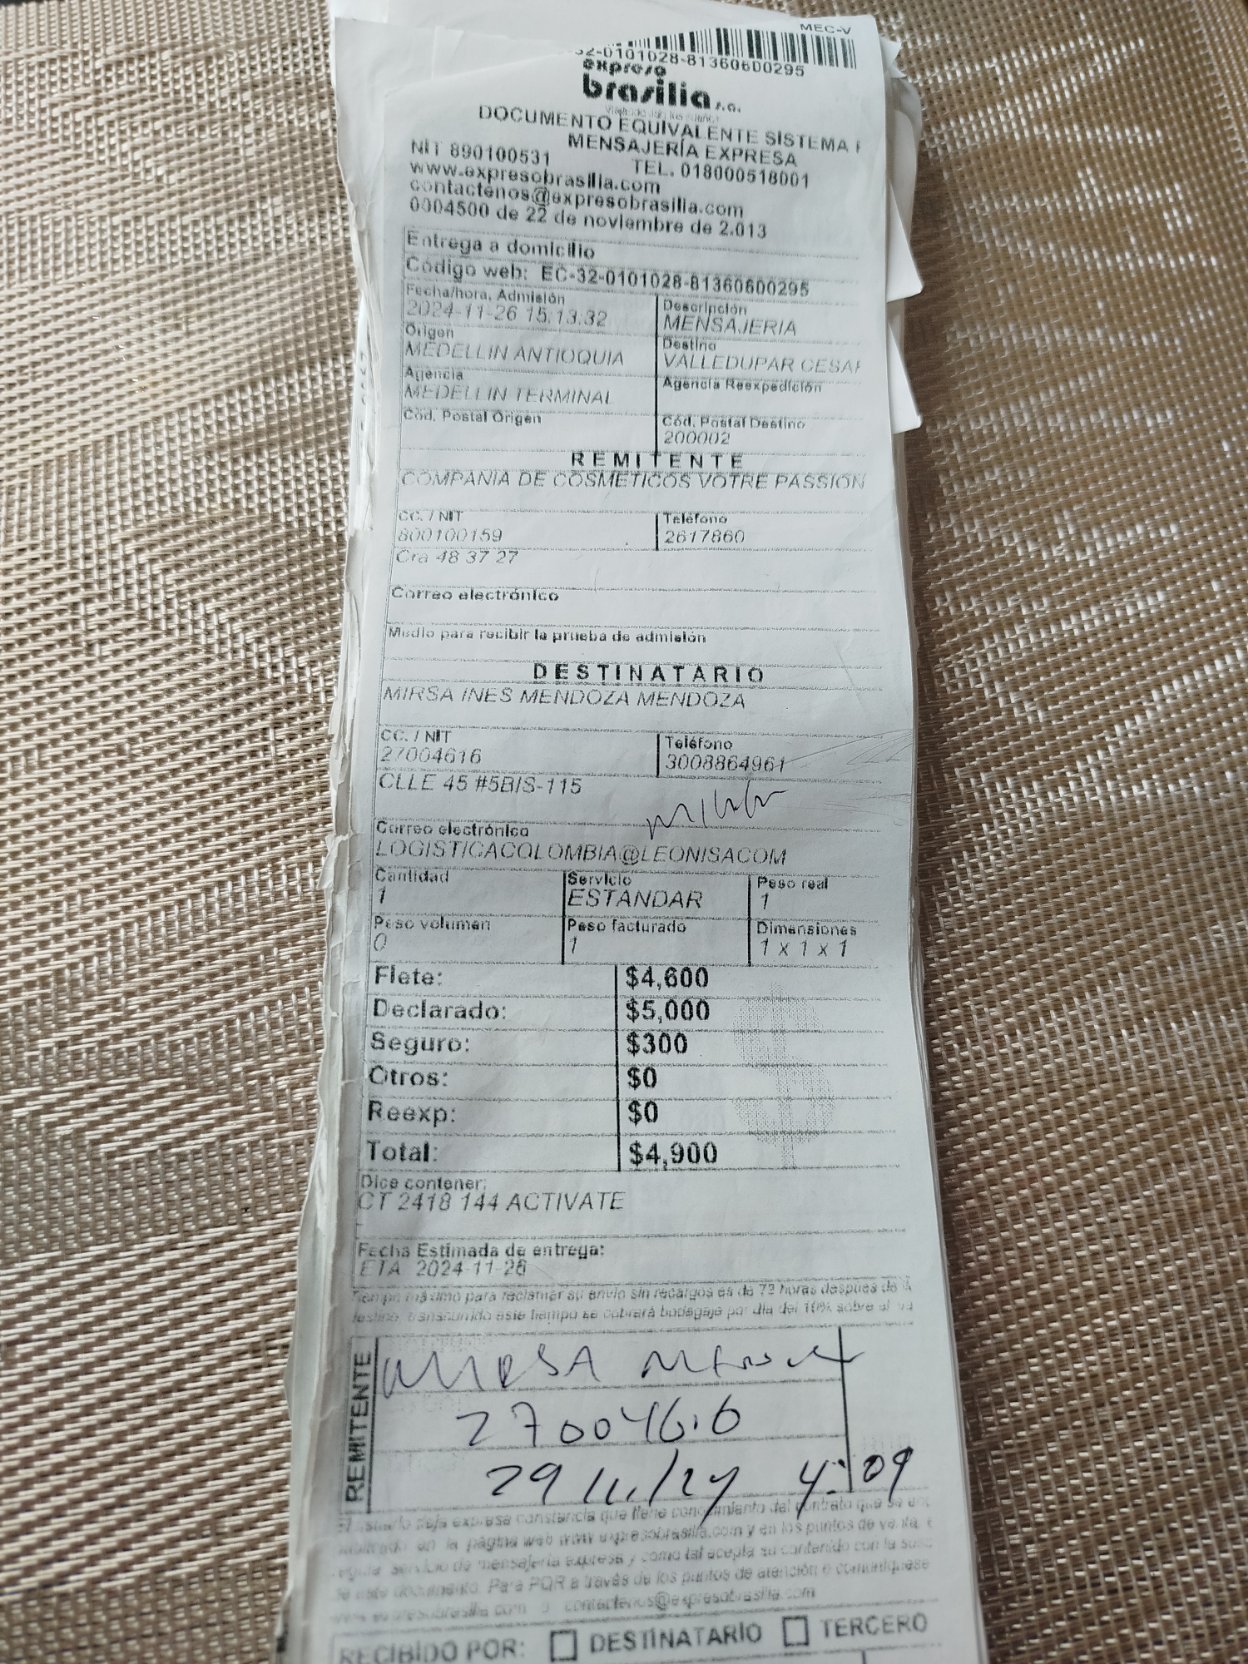 MEC-V
32-0101028-81360600295
expreso
brasilia s.a.
DOCUMENTO EQUIVALENTE SISTEMA
MENSAJERÍA EXPRESA
NIT 890100531 TEL. 018000518001
www.expresobrasilia.com
contactenos@expresobrasilia.com
0004500 de 22 de noviembre de 2.013
Entrega a domicilio
Código web: EC-32-0101028-81360600295
Fecha/hora, Admisión Descripción
2024-11-26 15.13.32 MENSAJERIA
Origen Destino
MEDELLIN ANTIOQUIA VALLEDUPAR CESAR
Agencia Agencia Reexpedición
MEDELLIN TERMINAL
Cód. Postal Origen Cód. Postal Destino
200002
REMITENTE
COMPANIA DE COSMETICOS VOTRE PASSION
CC. / NIT Teléfono
800100159 2617860
Cra 48 37 27
Correo electrónico
Medio para recibir la prueba de admisión
DESTINATARIO
MIRSA INES MENDOZA MENDOZA
CC. / NIT Teléfono
27004616 3008864961
CLLE 45 #5BIS-115
Correo electrónico
LOGISTICACOLOMBIA@LEONISACOM
Cantidad Servicio Peso real
1 ESTANDAR 1
Peso volumen Peso facturado Dimensiones
0 1 1 x 1 x 1
Flete: $4,600
Declarado: $5,000
Seguro: $300
Otros: $0
Reexp: $0
Total: $4,900
Dice contener:
CT 2418 144 ACTIVATE
Fecha Estimada de entrega:
ETA 2024-11-28
Tiempo máximo para reclamar su envio sin recargos es de 72 horas despues de
transcurrido este tiempo se cobrará bodegaje por día del 10% sobre el
REMITENTE
MIRSA
27004616
29/11/24 4:09
El usuario deja expresa constancia que tiene conocimiento del contrato que se
en la página web www.expresobrasilia.com y en los puntos de venta,
servicio de mensajería expresa y como tal acepta su contenido con la
este documento. Para PQR a través de los puntos de atención o comuníquese
contactenos@expresobrasilia.com
RECIBÍDO POR: DESTINATARIO TERCERO